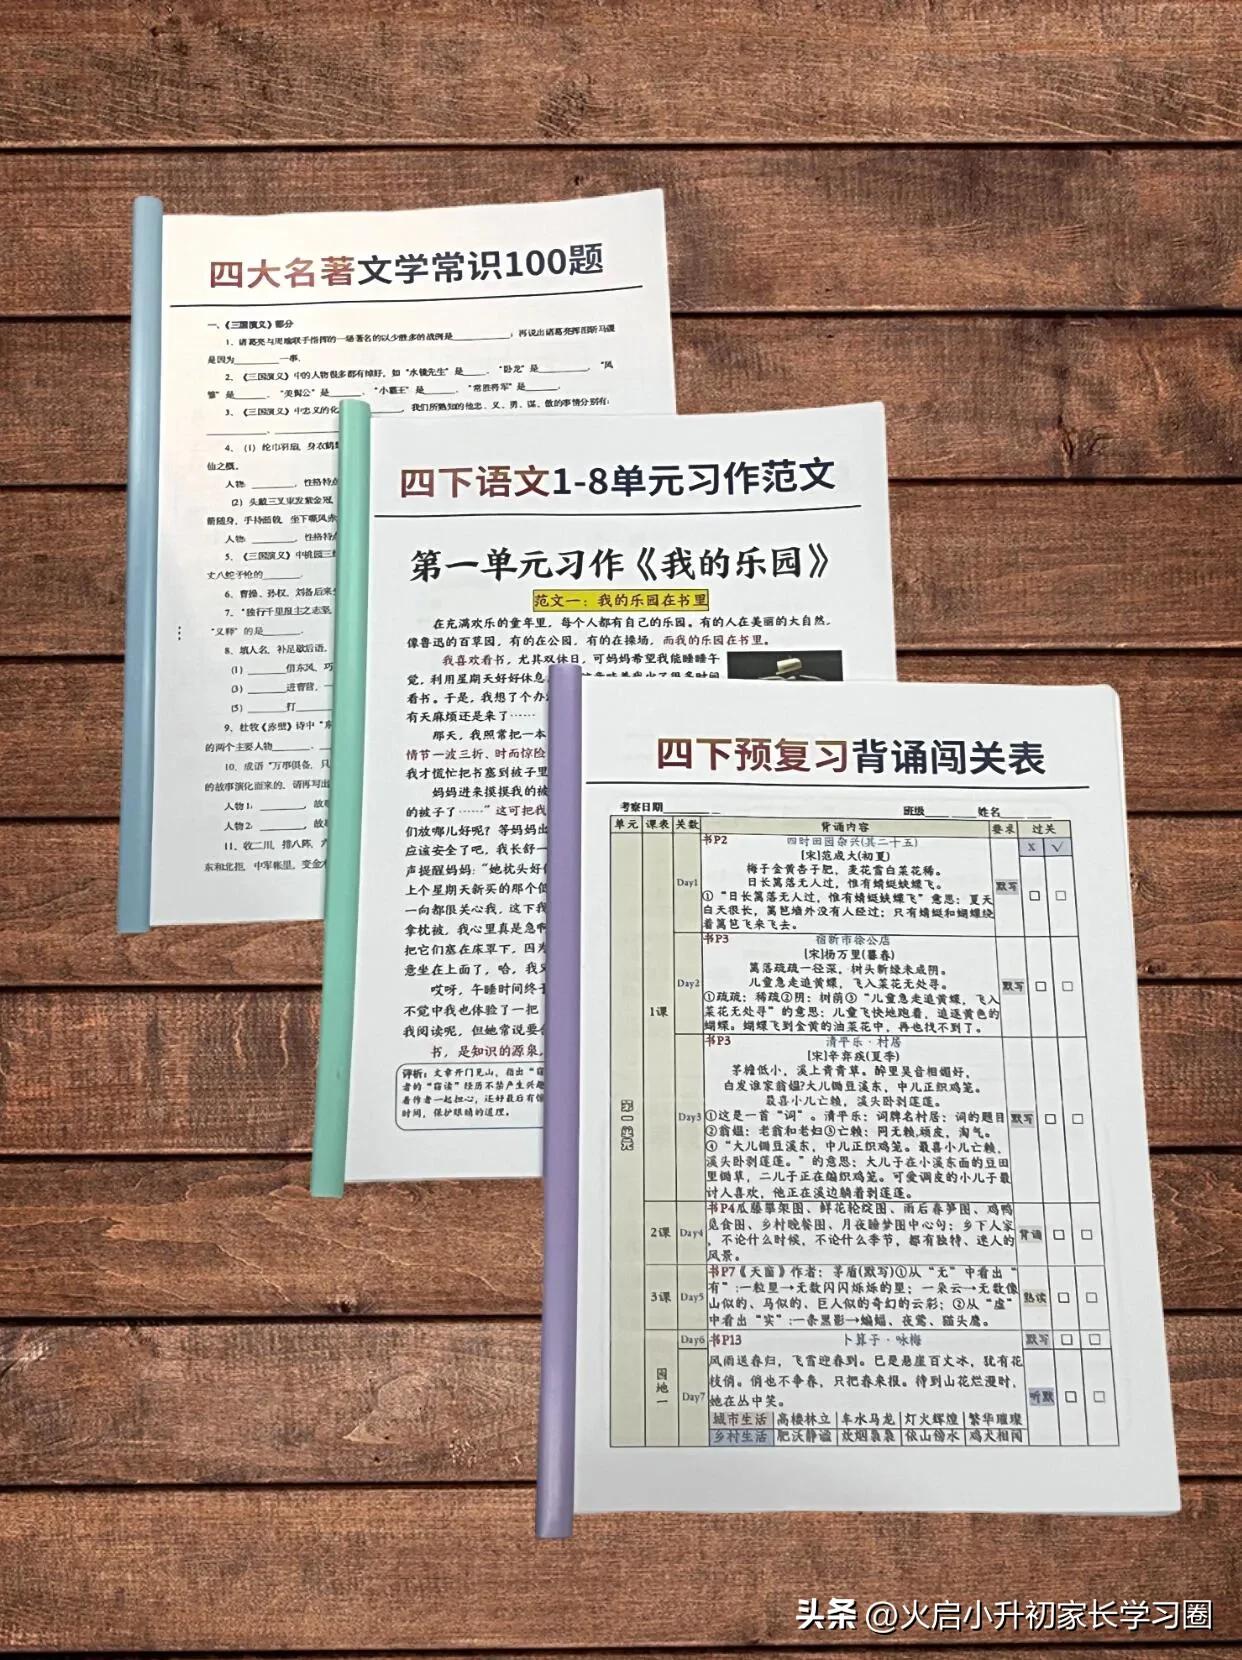 四大名著文学常识100题
一、《三国演义》部分
1、诸葛亮与周瑜联手指挥的一场著名的以少胜多的战例是；再说出诸葛亮挥泪斩马谡
是因为一事。
2、《三国演义》中的人物很多都有绰好，如“水镜先生”是、“卧龙”是、“凤
雏”是、“美髯公”是、“小霸王”是、“常胜将军”是。
3、《三国演义》中忠义的化，我们所熟知的他忠、义、勇、谋、傲的事情分别有：
4、(1) 纶巾羽扇，身衣鹤
仙之概。
人物：，性格特点
(2) 头戴三叉束发紫金冠，
箭随身，手持画戟，坐下嘶风赤
人物：，性格特点
5、《三国演义》中桃园三
丈八蛇矛枪的。
6、曹操、孙权、刘备后来
7、“独行千里报主之志坚，
“义释”的是。
8、填人名，补足歇后语。
(1) 借东风，巧
(3) 进曹营，一
(5) 打
9、杜牧《赤壁》诗中“东
的两个主要人物、
10、成语“万事俱备，只
的故事演化而来的，请再写出
人物1：，故事
人物2：，故事
11、收二川，排八阵，六
东和北拒，中军帐里，变金木
四下语文1-8单元习作范文
第一单元习作《我的乐园》
范文一：我的乐园在书里
在充满欢乐的童年里，每个人都有自己的乐园。有的人在美丽的大自然，
像鲁迅的百草园，有的在公园，有的在操场，而我的乐园在书里。
我喜欢看书，尤其双休日，可妈妈希望我能睡睡午
觉，利用星期天好好休息，
看书。于是，我想了个办
有天麻烦还是来了……
那天，我照常把一本
情节一波三折、时而惊险
我才慌忙把书塞到被子里
妈妈进来摸摸我的被
的被子了……”这可把我
们放哪儿好呢？等妈妈出
应该安全了吧，我长舒一
声提醒妈妈：“她枕头好
上个星期天新买的那个低
一向都很关心我，这下我
拿枕被。我心里真是急啊
把它们塞在床罩下，因为
意坐在上面了，哈，我又
哎呀，午睡时间终于
不觉中我也体验了一把
我阅读呢，但她常说要合
书，是知识的源泉，
评析：文章开门见山，指出“
者的“窃读”经历不禁产生兴趣
着作者一起担心，还好最后有惊
时间，保护眼睛的道理。
四下预复习背诵闯关表
考察日期 班级 姓名
单元 课表 关数 背诵内容 要求 过关
X √
书P2 四时田园杂兴(其二十五)
[宋]范成大(初夏)
梅子金黄杏子肥，麦花雪白菜花稀。
日长篱落无人过，惟有蜻蜓蛱蝶飞。
Day1 ①“日长篱落无人过，惟有蜻蜓蛱蝶飞”意思：夏天 默写 □ □
白天很长，篱笆墙外没有人经过；只有蜻蜓和蝴蝶绕
着篱笆飞来飞去。
书P3 宿新市徐公店
[宋]杨万里(暮春)
篱落疏疏一径深，树头新绿未成阴。
Day2 儿童急走追黄蝶，飞入菜花无处寻。 默写 □ □
①疏疏：稀疏②阴：树荫③“儿童急走追黄蝶，飞入
菜花无处寻”的意思：儿童飞快地跑着，追逐黄色的
蝴蝶。蝴蝶飞到金黄的油菜花中，再也找不到了。
1课
书P3 清平乐·村居
[宋]辛弃疾(夏季)
茅檐低小，溪上青青草。醉里吴音相媚好，
白发谁家翁媪?大儿锄豆溪东，中儿正织鸡笼。
最喜小儿亡赖，溪头卧剥莲蓬。
第一单元 Day3 ①这是一首“词”。清平乐：词牌名村居：词的题目 默写 □ □
②翁媪：老翁和老妇③亡赖：同无赖,顽皮，淘气。
④“大儿锄豆溪东，中儿正织鸡笼。最喜小儿亡赖，
溪头卧剥莲蓬。”的意思：大儿子在小溪东面的豆田
里锄草，二儿子正在编织鸡笼。可爱调皮的小儿子最
讨人喜欢，他正在溪边躺着剥莲蓬。
书P4瓜藤攀架图、鲜花轮绽图、雨后春笋图、鸡鸭
2课 Day4 觅食图、乡村晚餐图、月夜睡梦图中心句：乡下人家 背诵 □ □
，不论什么时候，不论什么季节，都有独特、迷人的
风景。
书P7《天窗》作者：茅盾(默写)①从“无”中看出“
有”:一粒星→无数闪闪烁烁的星；一朵云→无数像
3课 Day5 山似的、马似的、巨人似的奇幻的云彩；②从“虚” 熟读 □ □
中看出“实”:一条黑影→蝙蝠、夜莺、猫头鹰。
Day6 书P13 卜算子·咏梅 默写 □ □
园地一 风雨送春归，飞雪迎春到。已是悬崖百丈冰，犹有花
枝俏。俏也不争春，只把春来报。待到山花烂漫时，
Day7 她在丛中笑。 听默 □ □
城市生活 高楼林立 车水马龙 灯火辉煌 繁华璀璨
乡村生活 肥沃静谧 炊烟袅袅 依山傍水 鸡犬相闻
头条 @火启小升初家长学习圈